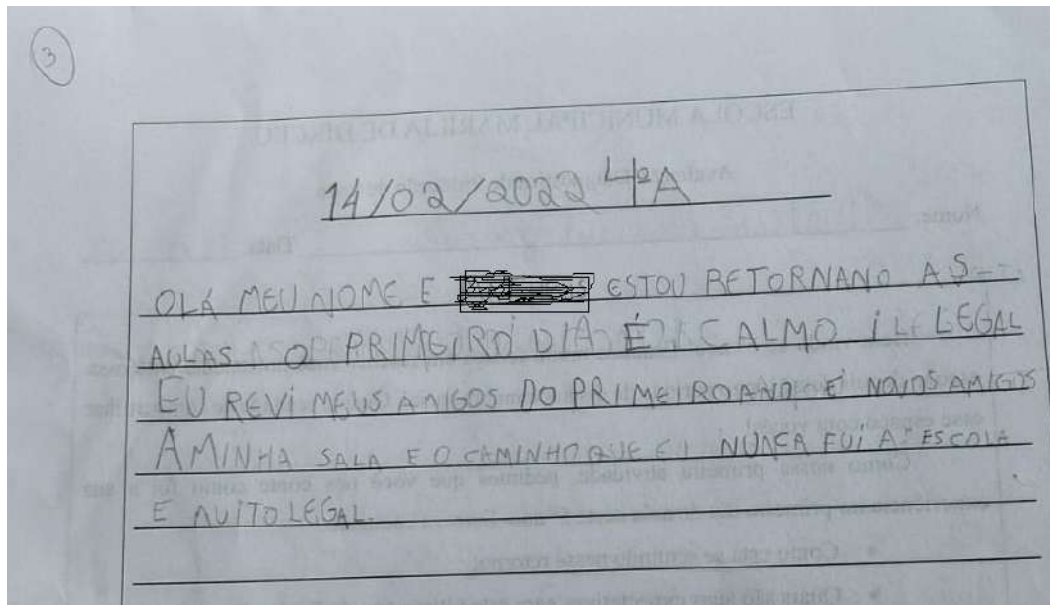 3
14/02/2022 4ºA
OLÁ MEU NOME E ESTOU RETORNANO AS
AULAS O PRIMEIRO DIA É CALMO I LEGAL
EU REVI MEUS AMIGOS DO PRIMEIRO ANO E NOVOS AMIGOS
A MINHA SALA E O CAMINHO QUE EU NUNCA FUI A ESCOLA
E MUITO LEGAL.